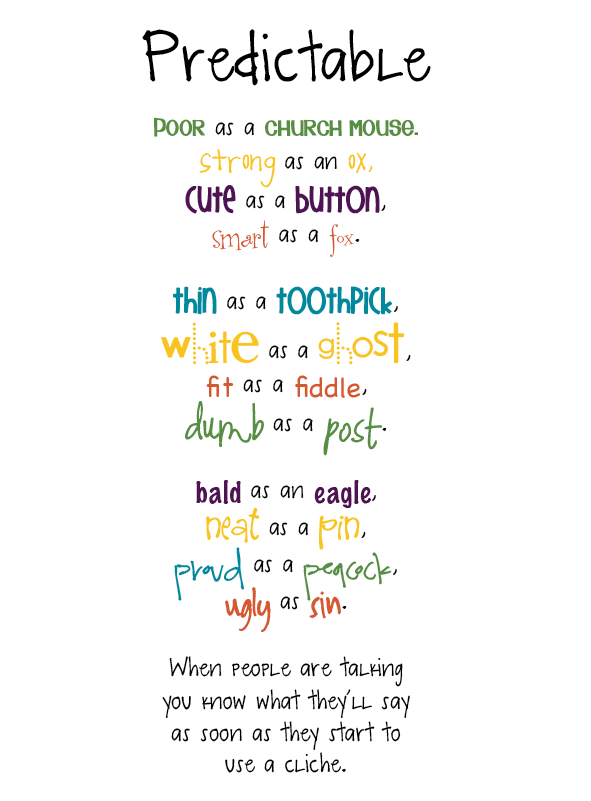 Predictable
POOR as a CHURCH MOUSE.
strong as an ox,
cute as a button,
smart as a fox.
thin as a toothpick,
white as a ghost,
fit as a fiddle,
dumb as a post.
bald as an eagle,
neat as a pin,
proud as a peacock,
ugly as sin.
When people are talking
you know what they'll say
as soon as they start to
use a cliche.